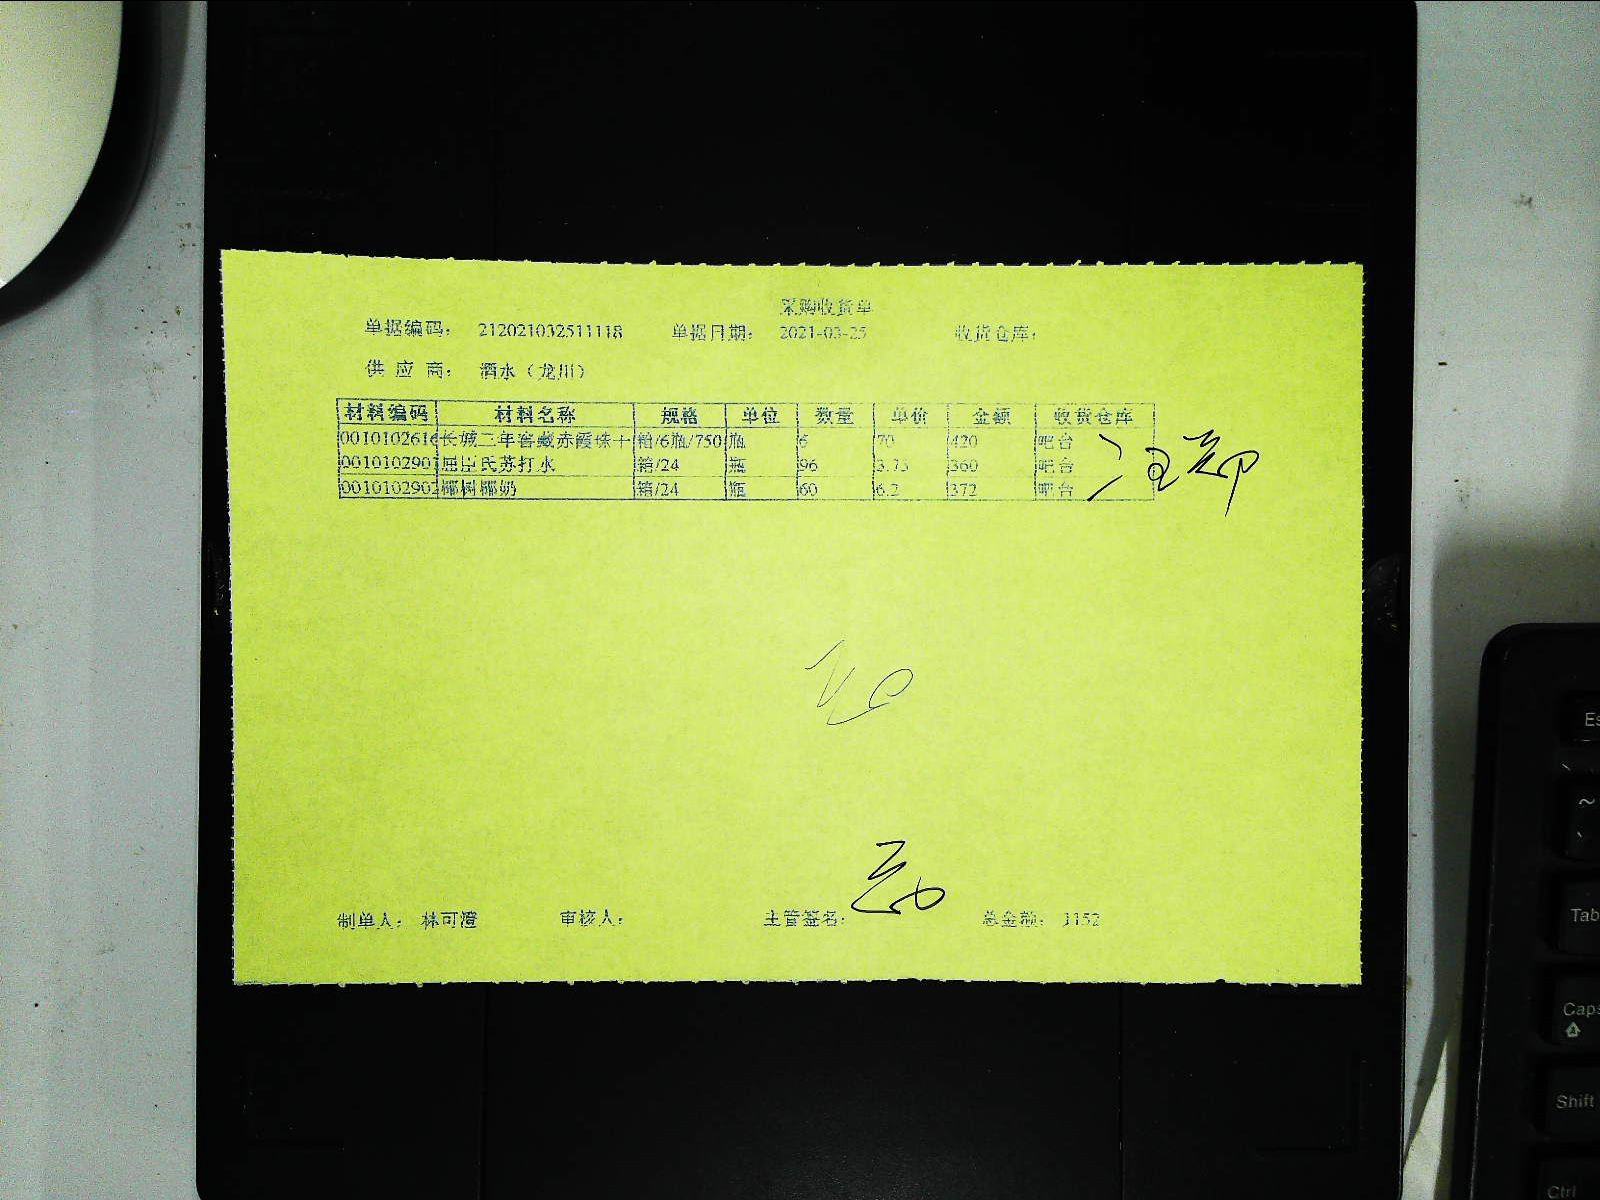 采购收货单
单据编码： 212021032511118 单据日期： 2021-03-25 收货仓库：
供 应 商： 酒水（龙川）
材料编码 材料名称 规格 单位 数量 单价 金额 收货仓库
0010102616 长城二年窖藏赤霞珠干 箱/6瓶/750 瓶 6 70 420 吧台
0010102901 屈臣氏苏打水 箱/24 瓶 96 3.75 360 吧台
0010102902 椰树椰奶 箱/24 瓶 60 6.2 372 吧台
制单人： 林可澄 审核人： 主管签名： 总金额： 1152
Es
~
Tab
Caps
Shift
Ctrl